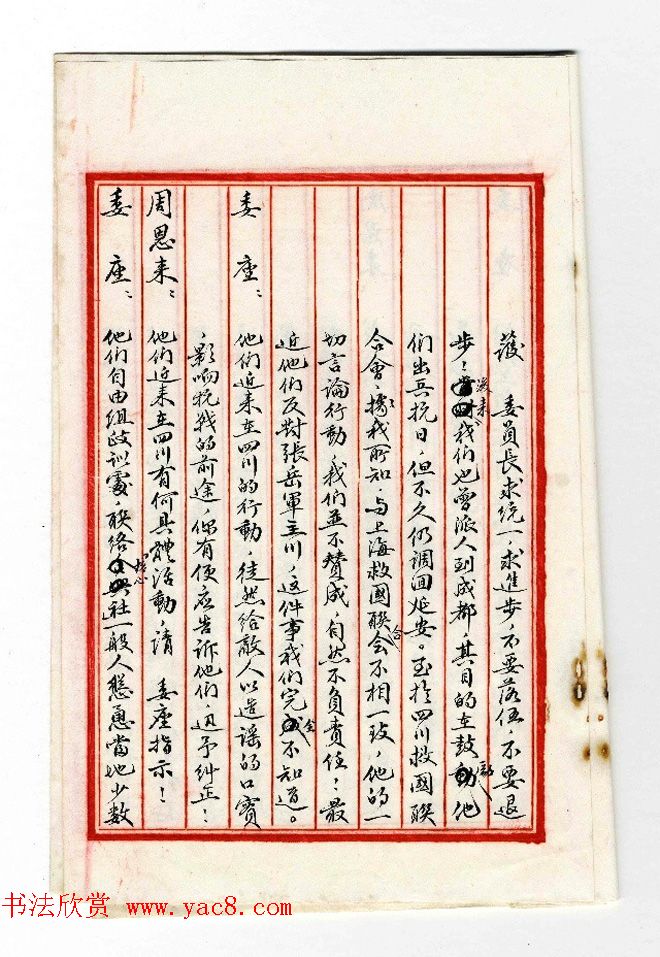 護　委員長求統一，求進步，不要落伍，不要退
步；後來我們也曾派人到成都，其目的在鼓勵他
們出兵抗日，但不久仍調回延安。至於四川救國聯
合會，據我所知，与上海救國聯合会不相一致，他的一
切言論行動，我們並不贊成，自然不負責任；最
近他們反對張岳軍主川，这件事我們完全不知道。
委　座：他们近来在四川的行動，徒然给敵人以造谣的口實
，影响抗战的前途，你有便应告诉他们，迅予纠正！
周恩来：他們近来在四川有何具體活動，请　委座指示！
委　座：他们自由组政训處，联络核心社一般人慫恿當地少数
书法欣赏 www.yac8.com